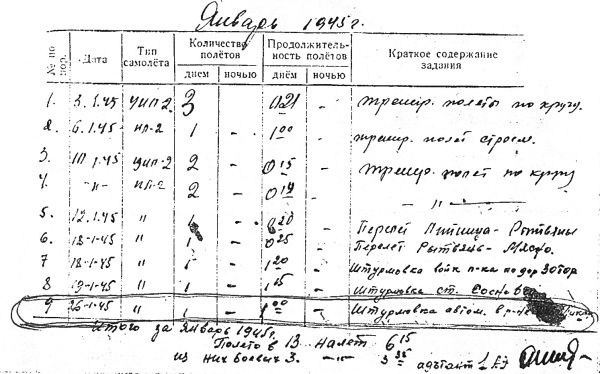 Январь 1945г.
№ по пор. Дата Тип самолёта Количество полётов Продолжительность полётов Краткое содержание задания
днем ночью днём ночью
1. 3.1.45 УИЛ-2 3 - 0 21 - тренир. полеты по кругу.
2. 6.1.45 ИЛ-2 1 - 1 00 - тренир. полет строем.
3. 11.1.45 УИЛ-2 2 - 0 15 - тренир. полет по кругу
4. -"- ИЛ-2 2 - 0 14 - - " -
5. 12.1.45 " 1 - 0 20 - Перелет
6. 18-1-45 " 1 - 0 25 - Перелет
7 18-1-45 " 1 - 1 20 - Штурмовка войск п-ка по дор.
8 19-1-45 " 1 - 1 15 - Штурмовка ст.
9 26-1-45 " 1 - 1 00 - Штурмовка автом. в р-не
Итого за Январь 1945г.
Полетов 13 налет 6 15
из них боевых 3. -"- 3 35 адъютант 1 АЭ